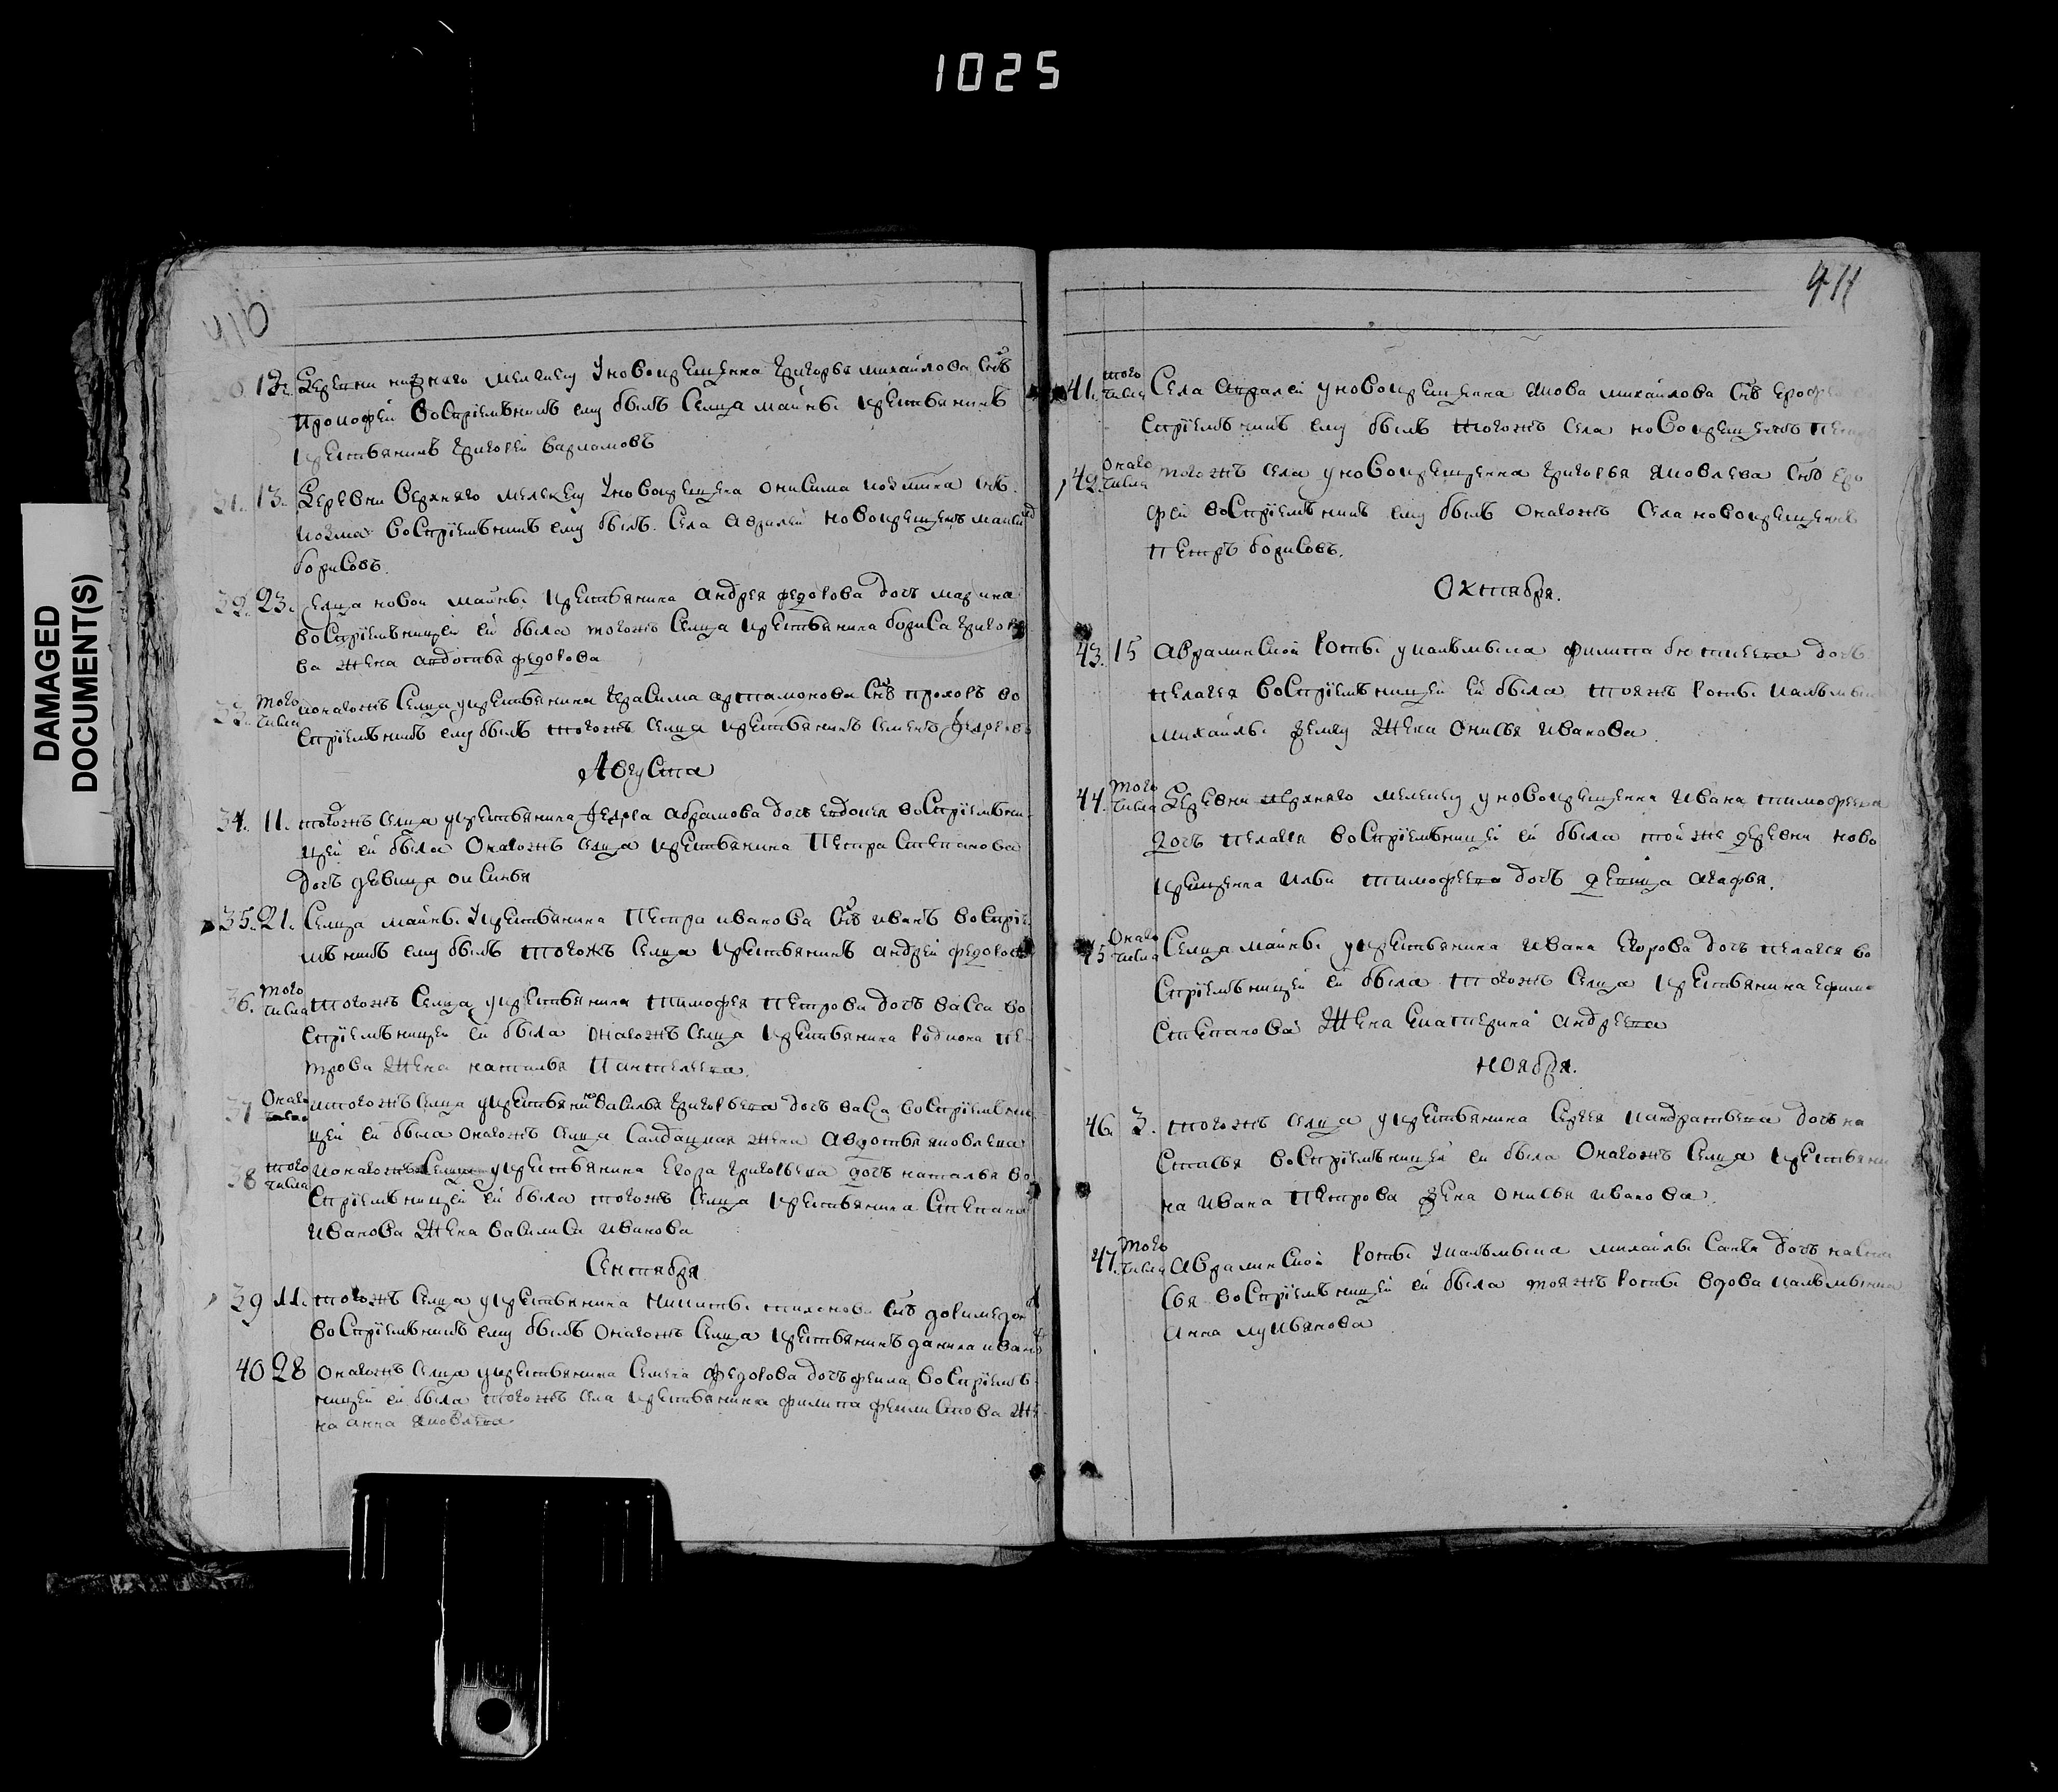 1025
DAMAGED
DOCUMENT(S)
410
12. Деревни нижняго мелекеш У новокрещенна григорья михайлова снъ
прокофеи воспріемникъ ему былъ селца майны крестьянинъ
крестьянинъ григореи варламовъ
31. 13. Деревни верхняго мелекеш У новокрещена онисима козмина снъ
козма воспріемникъ ему былъ села авралеи новокрещенъ
борисовъ.
32. 23. селца новои майны крестьянина андрея федорова дочь марина
воспріемницеи еи была тогожъ селца крестьянина бориса григорь
ва жена авдотья федорова
33. того числа онагожъ селца у крестьянина герасима артамонова снъ прохоръ во
спріемникъ ему былъ тогожъ селца крестьянинъ семенъ
Августа
34. 11. тогожъ селца у крестьянина федора абрамова дочь евдокея воспріемни
цеи еи была онагожъ селца крестьянина Петра степанова
дочь девица оксинья
35. 21. Селца майны У крестьянина Петра иванова снъ иванъ воспріе
мникъ ему былъ тогожъ селца крестьянинъ андреи федоровъ
36. того числа тогожъ селца у крестьянина тимофея петрова дочь васса во
спріемницеи еи была онагожъ селца крестьянина родиона пе
трова жена наталья Пантелеева.
37 Онаго числа тогожъ селца у крестьянина василья григорьева дочь васса воспріемни
цеи еи была онагожъ селца салдацкая жена авдотья яковлева
38 того числа онагожъ селца у крестьянина егора григорьева дочь наталья во
спріемницеи еи была тогожъ селца крестьянина степана
иванова жена василиса иванова
Сентября
39 11. тогожъ селца у крестьянина никиты тихонова снъ
воспріемникъ ему былъ онагожъ селца крестьянинъ данила ивановъ
40 28 онагожъ селца у крестьянина семена федорова дочь фекла воспріем
ницеи еи была тогожъ села крестьянина филипа феклистова же
на анна яковлева
411
41. того числа Села авралеи у новокрещенна якова михайлова снъ ерофе
спріемникъ ему былъ тогожъ села новокрещенъ петръ
42. Онаго числа тогожъ села у новокрещенна григорья яковлева снъ еро
феи воспріемникъ ему былъ онагожъ села новокрещенъ
петръ борисовъ.
Октября.
43. 15 авралинской роты у калмыка филипа дочь
пелагея воспріемницеи еи была тояжъ роты калмыка
михайлы жена онисья иванова.
44. того числа Деревни верхняго мелекеш у новокрещенна ивана тимофеева
дочь пелагея воспріемницеи еи была той же деревни ново
крещенна ильи тимофеева дочь девица агафья.
45 Онаго числа Селца майны у крестьянина ивана егорова дочь пелагея во
спріемницеи еи была тогожъ селца крестьянина ефима
степанова жена екатерина андреева
Ноября.
46. 3. тогожъ селца у крестьянина сергея кандратьева дочь на
стасья воспріемницеи еи была онагожъ селца крестьяни
на ивана петрова жена онисья иванова.
47. того числа авралинской роты У калмыка михайлы дочь наста
сья воспріемницеи еи была тояжъ роты вдова калмычка
анна лукьянова